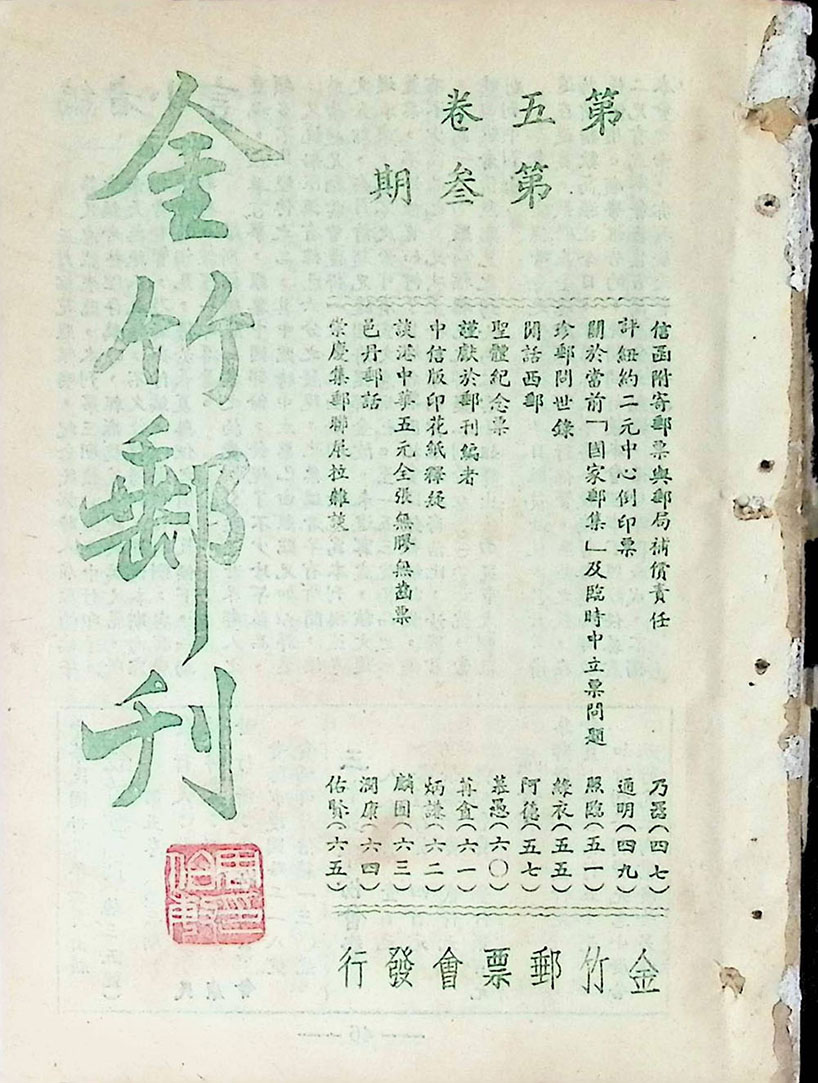 第五卷
第叁期
信函附寄郵票與郵局補償責任 乃器(四七)
評紐約二元中心倒印票 通明(四九)
關於當前「國家郵集」及臨時中立票問題 照臨(五一)
珍郵問世錄 綠衣(五五)
閒話西郵 阿德(五七)
聖體紀念票 慕愚(六〇)
謹獻於郵刊編者 苒貪(六一)
中信版印花紙釋疑 炳謙(六二)
談港中華五元全張無膠無齒票 麟圖(六三)
邑丹郵話 潤康(六四)
崇慶集郵聯展拉雜談 佑賢(六五)
金竹郵票會發行
金竹郵刊